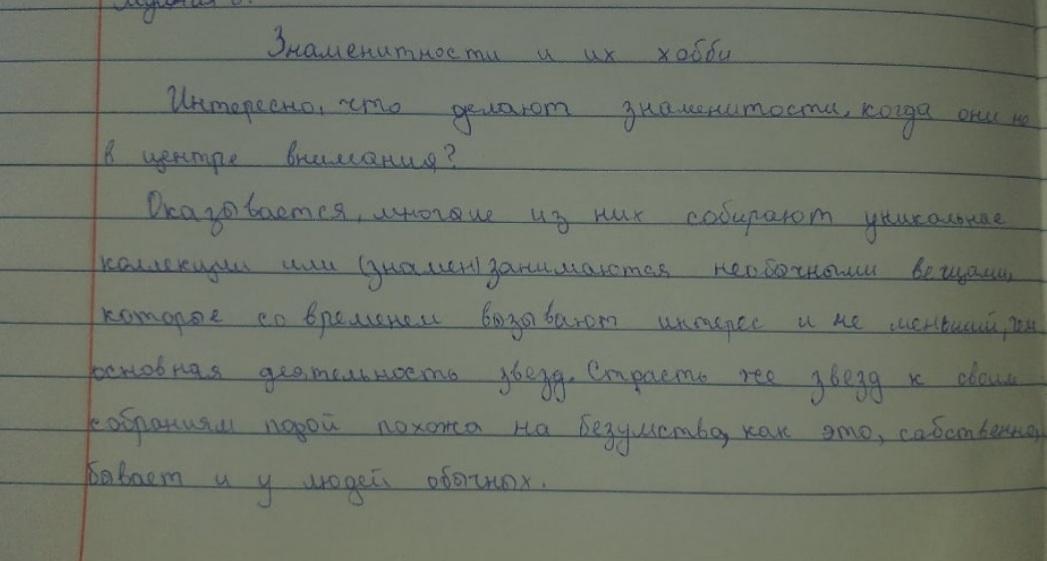 Знаменитности и их хобби
Интересно, что делают знаменитости, когда они не
в центре внимания?
Оказывается, многие из них собирают уникальные
коллекции или (знамен) занимаются необычными вещами,
которые со временем вызывают интерес и не меньший, чем
основная деятельность звезд. Страсть же звезд к своим
собраниям порой похожа на безумство, как это, собственно,
бывает и у людей обычных.